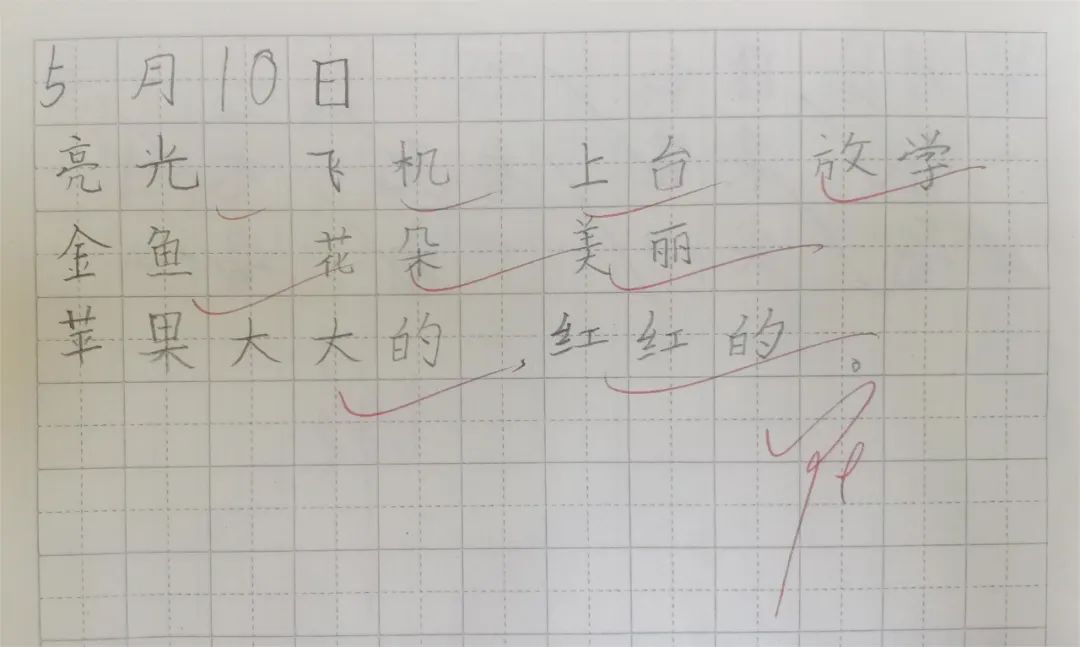 5月10日
亮光 飞机 上台 放学
金鱼 花朵 美丽
苹果大大的，红红的。